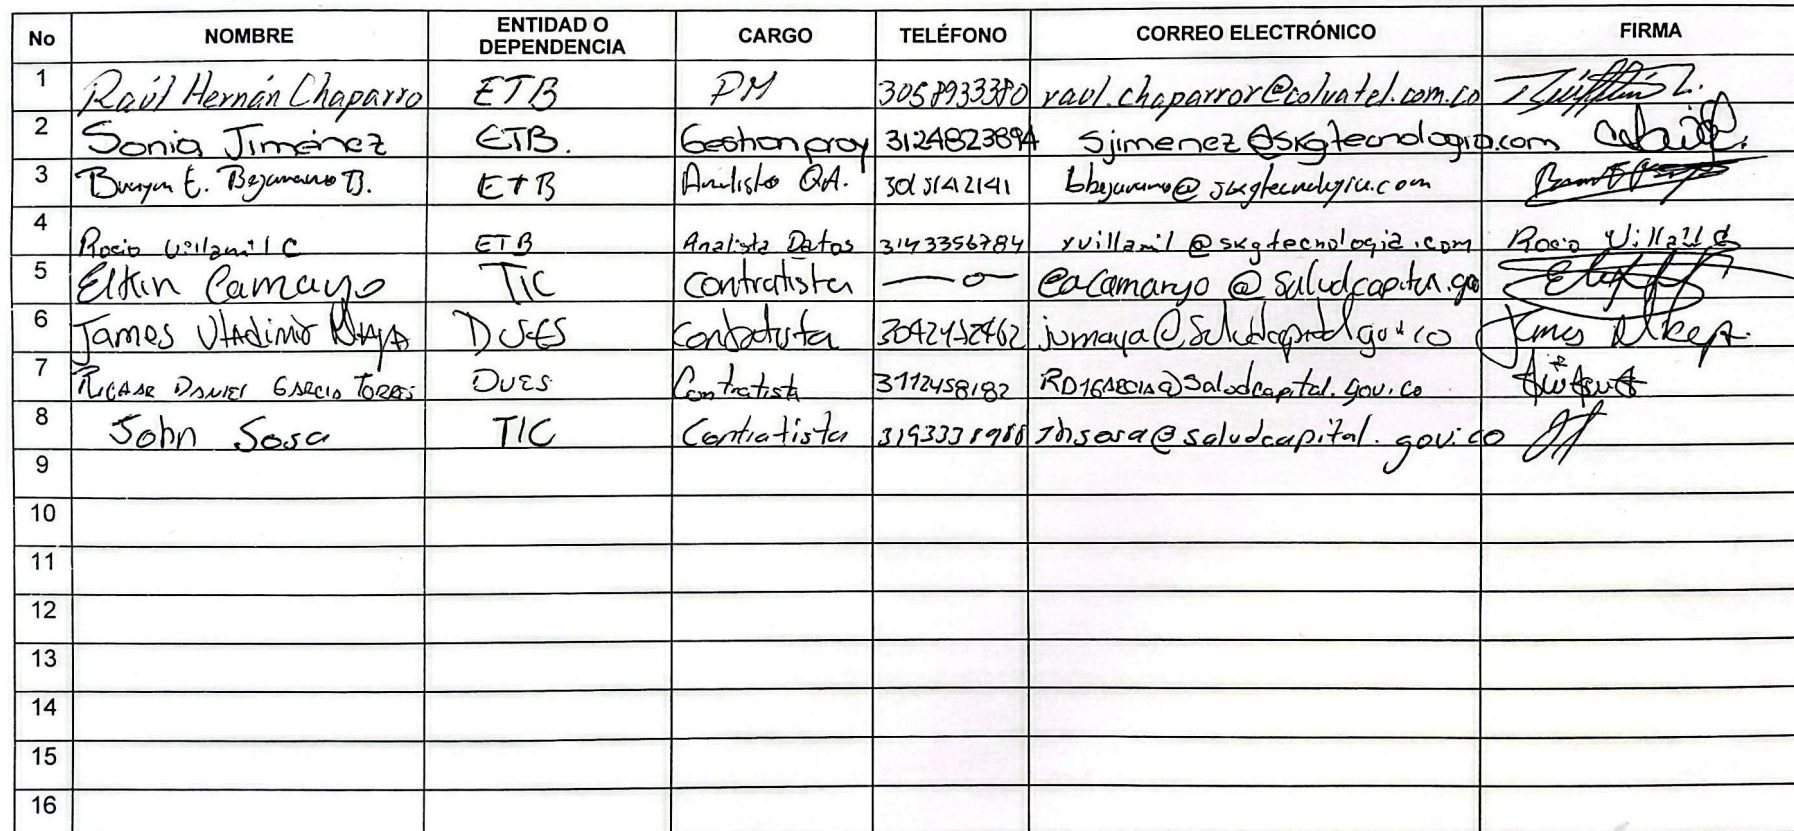 No NOMBRE ENTIDAD O DEPENDENCIA CARGO TELÉFONO CORREO ELECTRÓNICO FIRMA
1 Raúl Hernán Chaparro ETB PM 3058933380 raul.chaparror@colvatel.com.co
2 Sonia Jiménez ETB. Gestion proy 3124823894 sjimenez@skgtecnologia.com
3 E. Bejarano B. ETB Analista QA. 3015142141 bbejarano@skgtecnologia.com
4 Rocio Villamil C ETB Analista Datos 3143356784 rvillamil@skgtecnologia.com Rocio Villa C
5 Elkin Camayo TIC contratista —o—
6 James Vladimir Maya DUES contratista jvmaya@saludcapital.gov.co James
7 Daniel Garcia Torres DUES Contratista 3112458182 RD1GARCIA@saludcapital.gov.co
8 John Sosa TIC Contratista saludcapital.gov.co
9
10
11
12
13
14
15
16